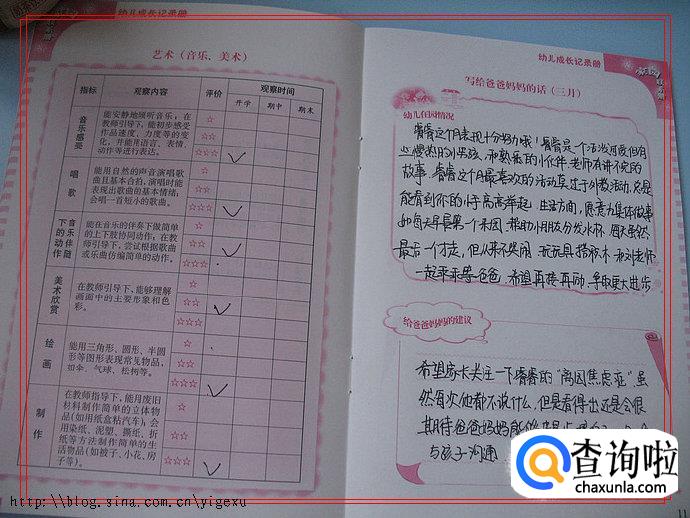 幼儿成长记录册
艺术（音乐、美术）
指标 观察内容 评价 观察时间
开学 期中 期末
音乐感受
能安静地倾听音乐；在
教师引导下，能初步感受
作品速度、力度等的变
化，并能用语言、表情、
动作等进行表达。
☆
☆☆
☆☆☆
唱歌
能用自然的声音演唱歌
曲且基本合拍，演唱时能
表现出歌曲的基本情绪；
会唱一首短小的歌曲。
☆
☆☆
☆☆☆
音乐伴随下的动作
能在音乐的伴奏下做简单
的上下肢协同动作；在教
师引导下，尝试根据歌曲
或乐曲仿编简单的动作。
☆
☆☆
☆☆☆
美术欣赏
在教师引导下，能够理解
画面中的主要形象和色
彩。
☆
☆☆
☆☆☆
绘画
能用三角形、圆形、半圆
形等图形表现常见物品，
如伞、气球、松树等。
☆
☆☆
☆☆☆
制作
在教师指导下，能用废旧
材料制作简单的立体物
品（如用纸盒粘汽车）；会
用染纸、泥塑、撕纸、折
纸等方法制作简单的生
活物品（如被子、小花、房
子等）。
☆
☆☆
☆☆☆
幼儿成长记录册
写给爸爸妈妈的话（三月）
幼儿在园情况
睿睿这个月表现十分努力哦！睿睿是个活泼可爱但有
些慢热的小男孩，和熟悉的小伙伴、老师有讲不完的
故事。睿睿这个月最喜欢的活动莫过于小数活动，总是
能看到你的小手高高举起。生活方面，愿意为集体做事
如每天早晨第一个来园，帮助小朋友分发水杯。周五虽然
最后一个才走，但从不哭闹，玩玩具搭积木，和刘老师
一起乖乖等爸爸。希望再接再励，争取更大进步
给爸爸妈妈的建议
希望家长关注一下睿睿的“离园焦虑症”虽
然每次他都不说什么，但是看得出还是会很
期待爸爸妈妈能
与孩子沟通
11
查询啦
chaxunla.com
http://blog.sina.com.cn/yigexu